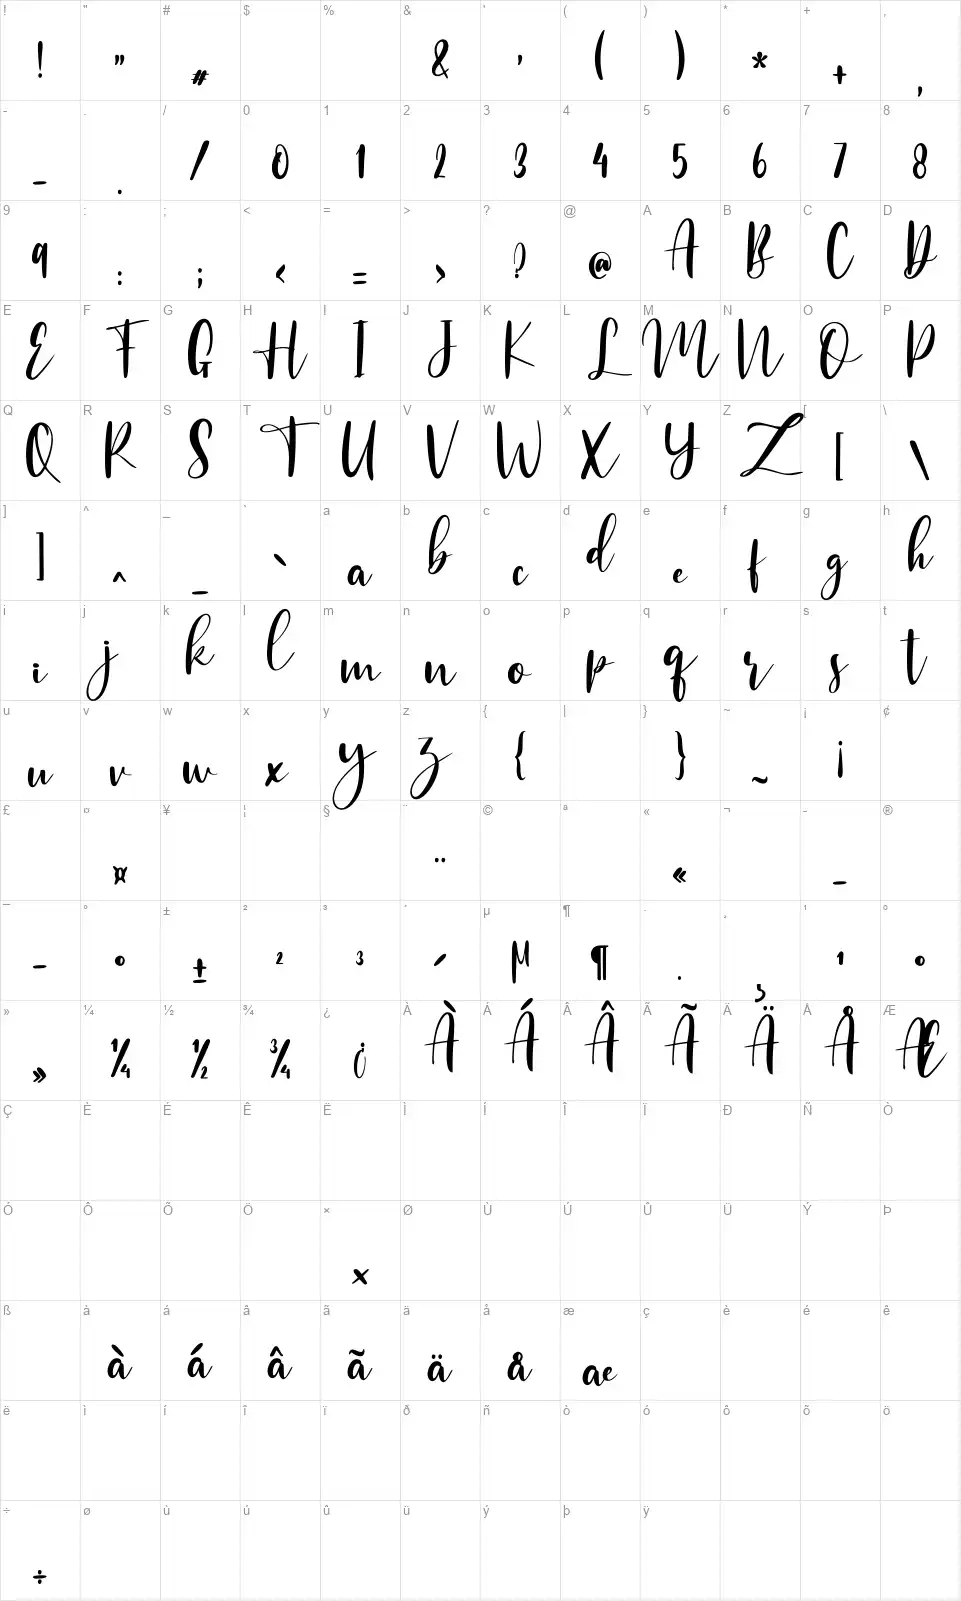 ! " # $ % & ' ( ) * + ,
! " # & ' ( ) * + ,
- . / 0 1 2 3 4 5 6 7 8
- . / 0 1 2 3 4 5 6 7 8
9 : ; < = > ? @ A B C D
9 : ; < = > ? @ A B C D
E F G H I J K L M N O P
E F G H I J K L M N O P
Q R S T U V W X Y Z [ \
Q R S T U V W X Y Z [ \
] ^ _ ` a b c d e f g h
] ^ _ ` a b c d e f g h
i j k l m n o p q r s t
i j k l m n o p q r s t
u v w x y z { | } ~ ¡ ¢
u v w x y z { } ~ ¡
£ ¤ ¥ ¦ § ¨ © ª « ¬ - ®
¤ ¨ « -
¯ ° ± ² ³ ´ µ ¶ · ¸ ¹ º
¯ ° ± ² ³ ´ µ ¶ · ¸ ¹ º
» ¼ ½ ¾ ¿ À Á Â Ã Ä Å Æ
» ¼ ½ ¾ ¿ À Á Â Ã Ä Å Æ
Ç È É Ê Ë Ì Í Î Ï Ð Ñ Ò
Ó Ô Õ Ö × Ø Ù Ú Û Ü Ý Þ
×
ß à á â ã ä å æ ç è é ê
à á â ã ä å æ
ë ì í î ï ð ñ ò ó ô õ ö
÷ ø ù ú û ü ý þ ÿ
÷